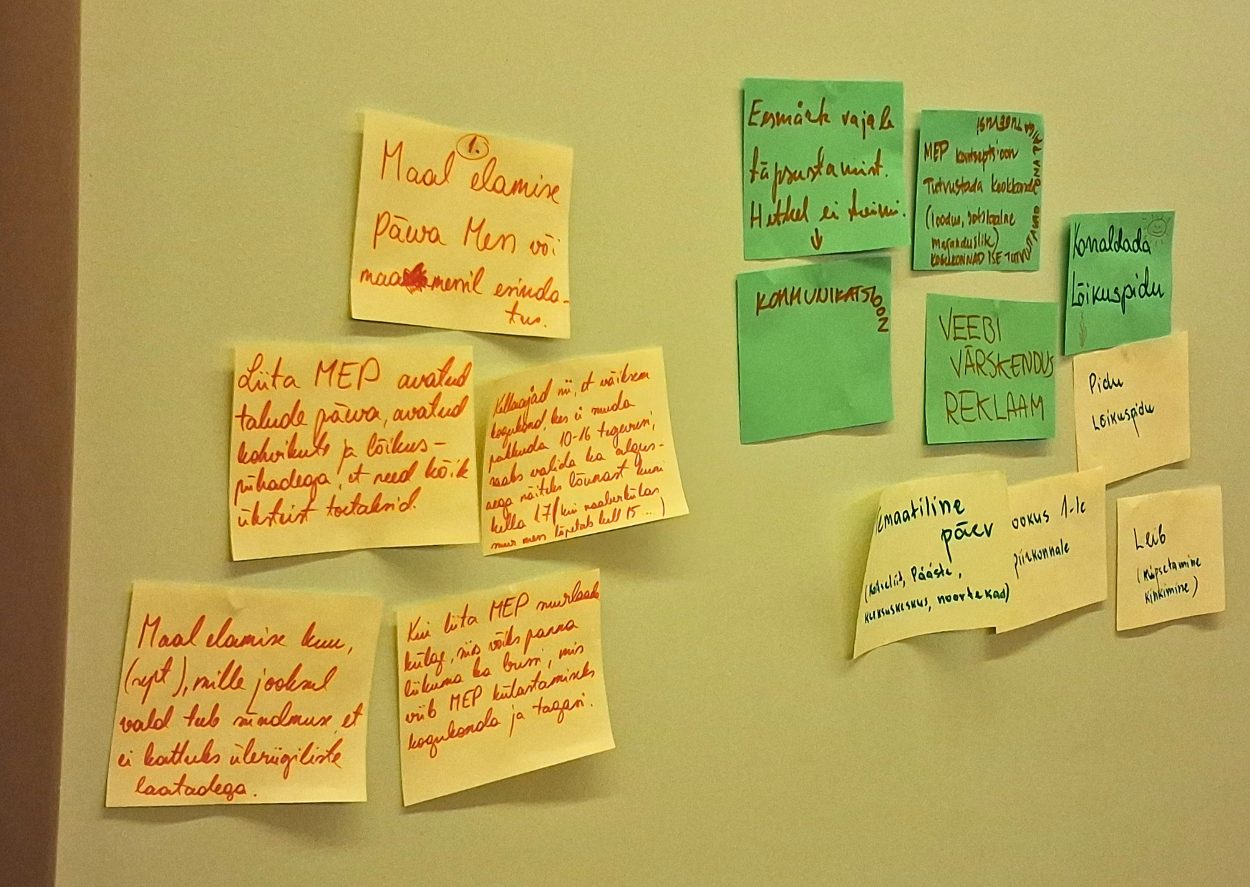 1.
Maal elamise
päeva Mess või
maa messil esinda-
tus.
Liita MEP avatud
talude päeva, avatud
kohvikute ja lõikus-
pühadega, et need kõik
üksteist toetaksid.
Kellaajad nii, et väiksem
kogukond, kes ei suuda
pakkuda 10-16 tegevusi,
saaks valida ka algus-
aega näiteks lõunast kuni
kella 17/kui naaberkülas
suur mess lõpetab kell 15...)
Maal elamise kuu,
(sept), mille jooksul
vald teeb sündmuse, et
ei kattuks üleriigiliste
laatadega.
Kui liita MEP suurlaada
külge, siis võiks panna
liikuma ka bussi, mis
viib MEP külastamiseks
kogukonda ja tagasi.
Eesmärk vajab
täpsustamist.
Hetkel ei toimi.
↓
KOMMUNIKATSIOON
MEP kontseptsioon
Tutvustada kogukonda
(loodus, sotsiaalne
majanduslik)
KOGUKONNAD ISE TUTVUSTAVAD OMA
VEEBI
VÄRSKENDUS
REKLAAM
Korraldada
Lõikuspidu
Pidu
Lõikuspidu
Temaatiline
päev
(Kaitseliit, Pääste,
noortekad)
ookus 1-le
piirkonnale
Leib
(küpsetamine
kinkimine)